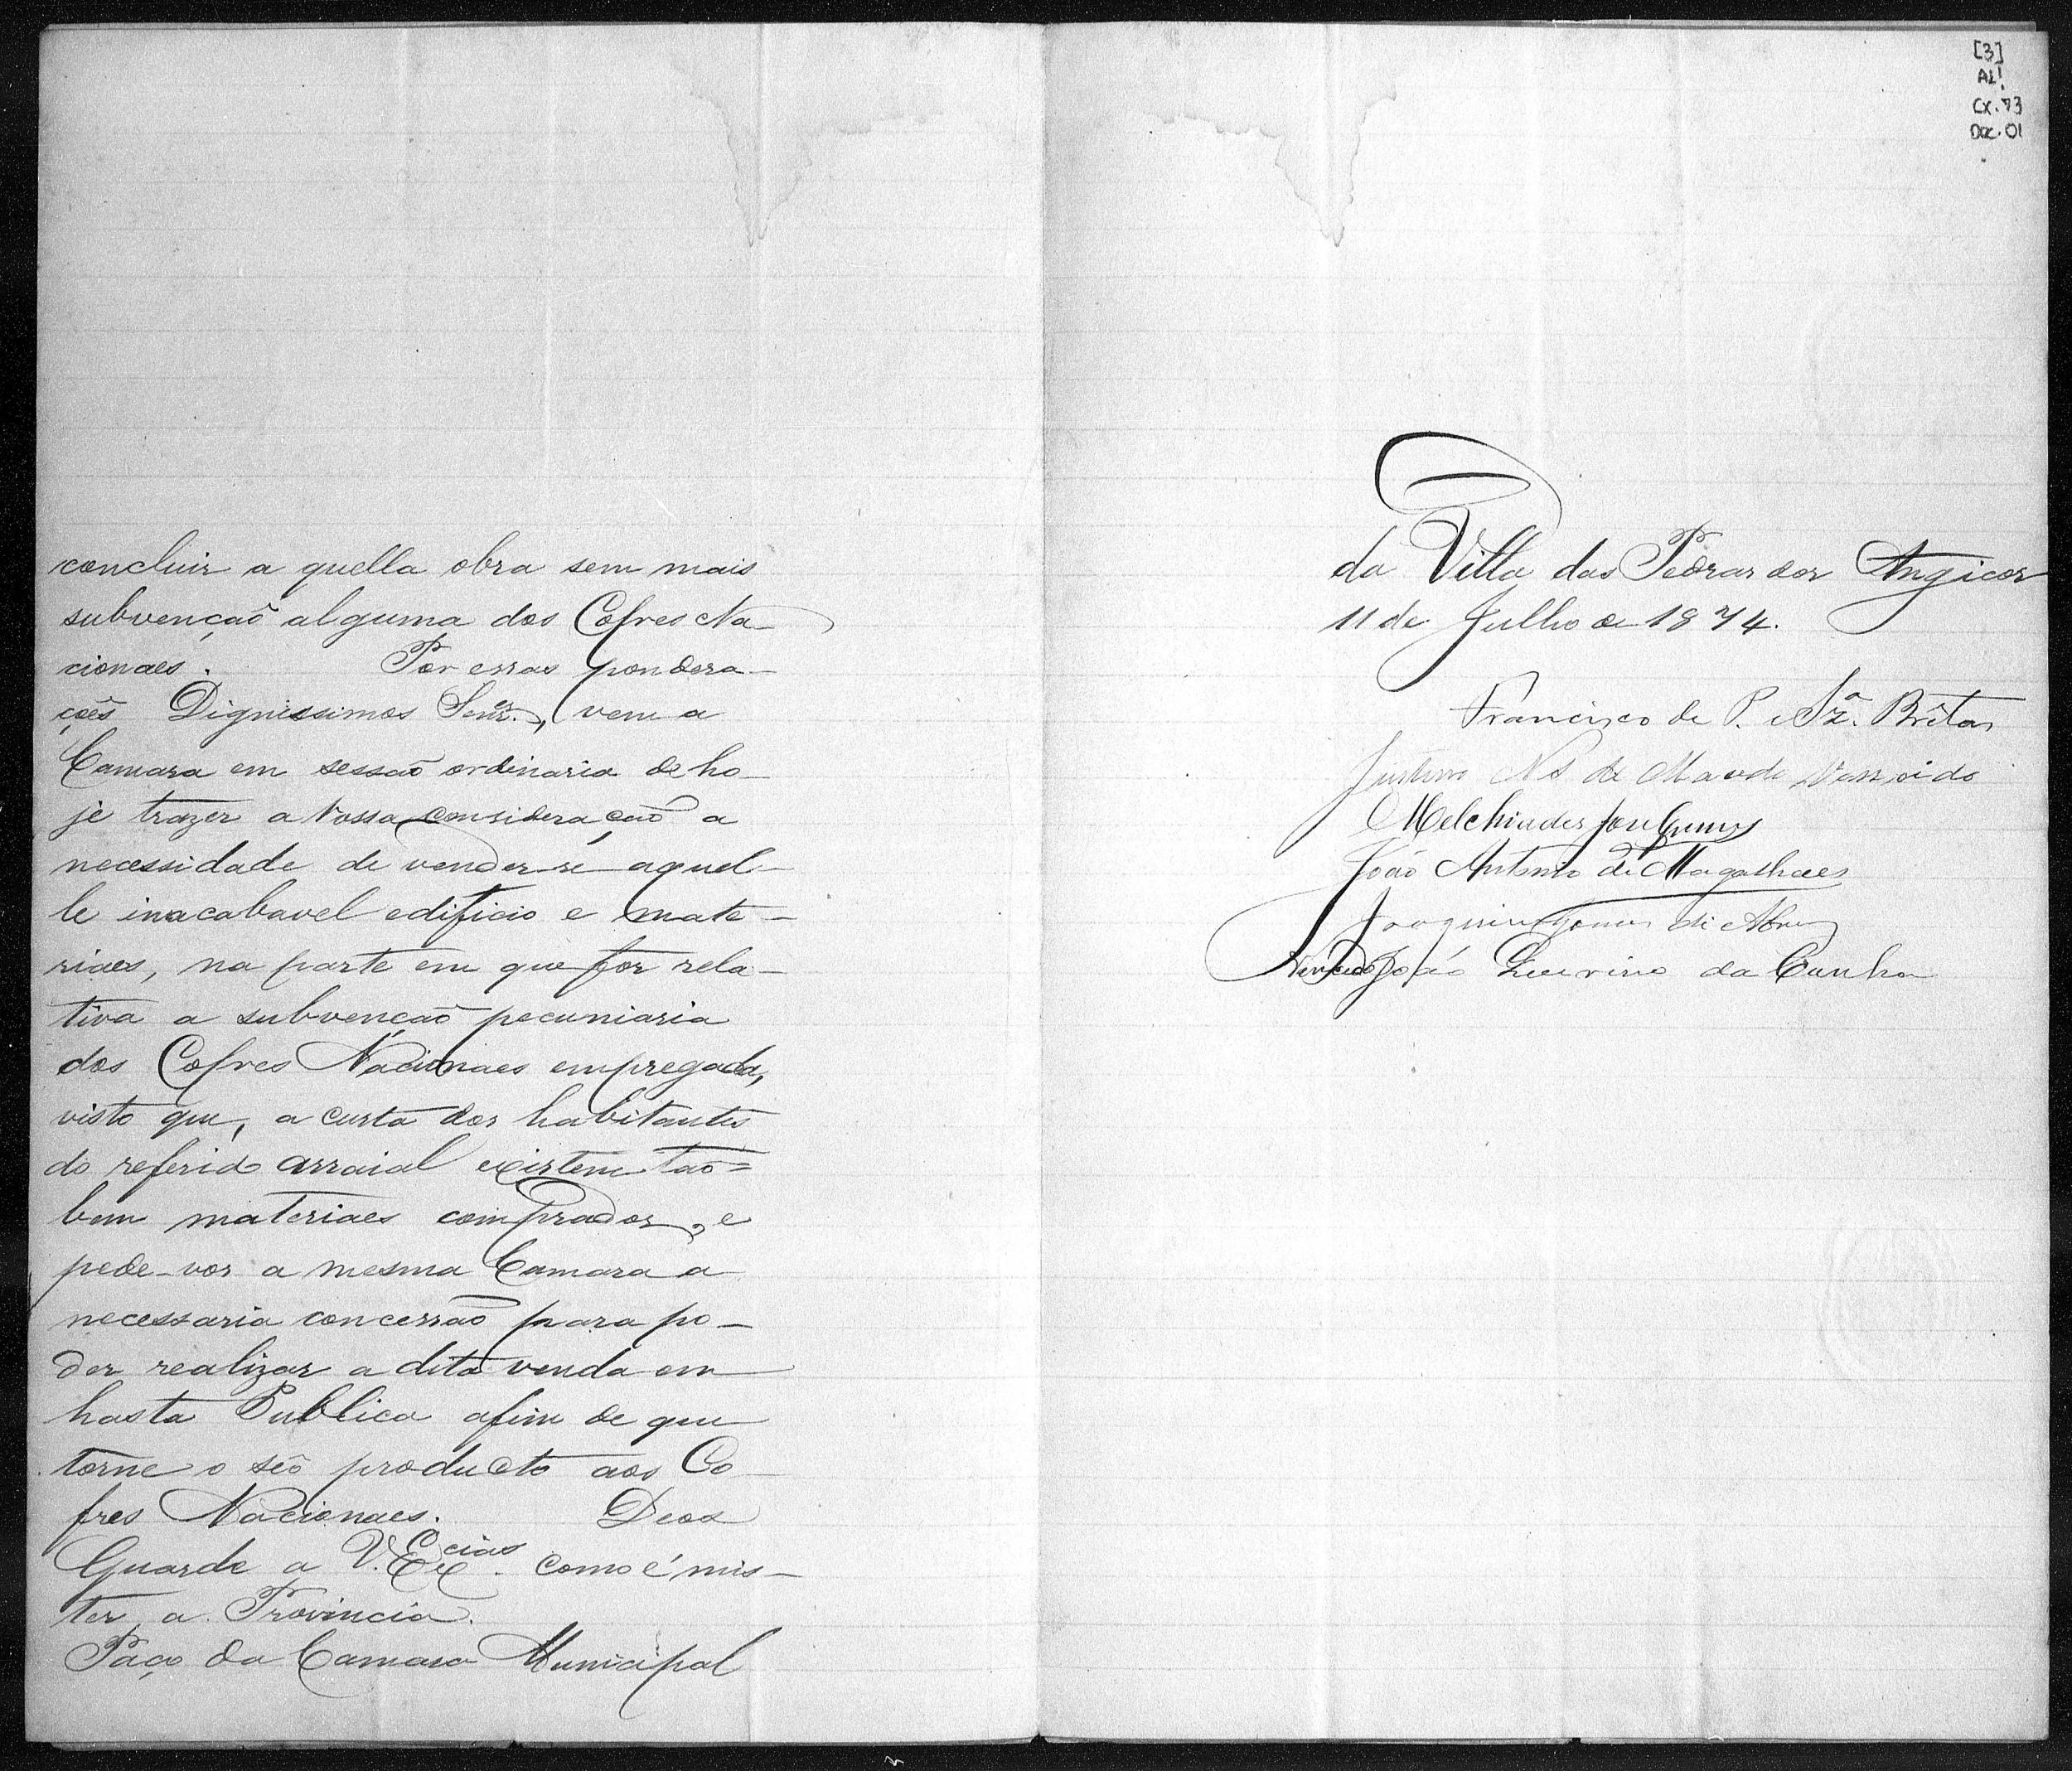 concluir a quella obra sem mais
subvenção alguma dos Cofres Na-
cionaes. Por essas pondera-
ções Dignissimos Senr.es, vem a
Camara em sessão ordinaria de ho-
je trazer a Vossa consideração a
necessidade de vender-se aquel-
le inacabavel edificio e mate-
riaes, na parte em que for rela-
tiva a subvenção pecuniaria
dos Cofres Nacionaes empregada,
visto que, a custa dos habitantes
do referido arraial existem tão=
bem materiaes comprados, e
pede-vos a mesma Camara a
necessaria concessão para po-
der realizar a dita venda em
hasta Publica afim de que
torne o seo producto aos Co-
fres Nacionaes. Deos
Guarde a V. Ex.cias como é mis-
ter a Provincia.
Paço da Camara Municipal
[3]
AL!
CX. 73
Doc. 01
da Villa das Pedras dos Angicos
11 de Julho de 1874.
Francisco de P. e Sz.a Brêtas
Justino de
Melchiades José Gomes
João Antonio de Magalhães
Joaquim Gomes de Abreu
Vencido João da Cunha